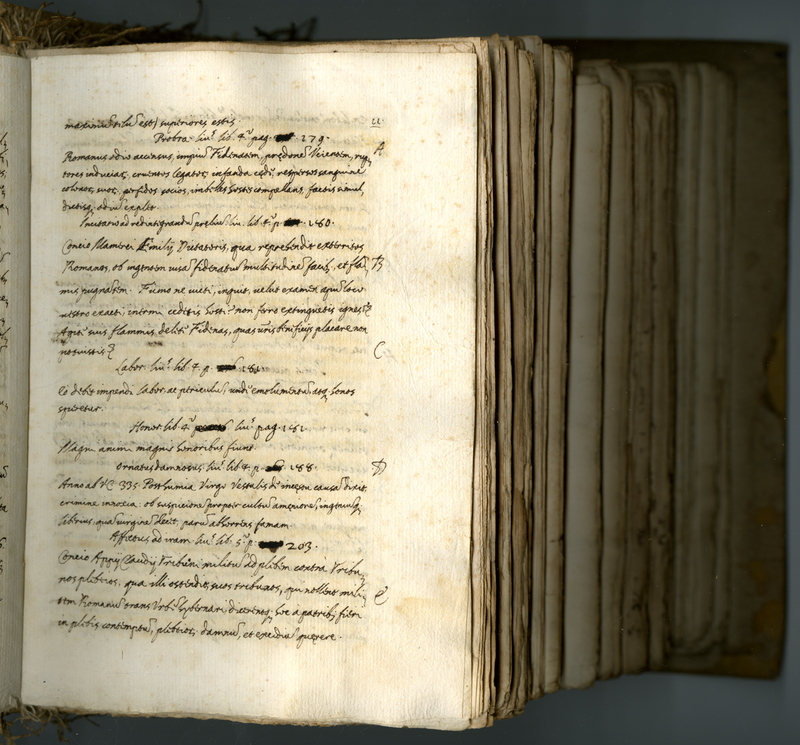 superiores estis.
11.
Probra liu. lib. 4. pag. 279.
Romanus odio accensus, impiũ Fidenatem, prędonẽ Veientem, rup
A
tores induciaꝝ, cruentos legatoꝝ infanda cędẽ, respersos sanguine
colonoꝝ suoꝝ, perfidos socios, imbelles hostes compellans, factis simul,
dictisq; odiũ explet.
liu. lib. 4. p. 280.
Concio Mamerci Ęmilij Dictatoris, qua reprehendit exterritos
Romanos, ob ingentem Fidenatũ multitudinẽ facib; et flã
B
mis pugnãtem. Fumo ne victi, inquit, velut examen apũ loco
vestro exacti, inermi cedetis hosti? non ferro extinguetis ignes?
suis flammis delete Fidenas, quas vestris beneficijs placare non
potuistis?
C
Labor liu. lib. 4. p. 281.
Eo debet impendi labor, ac periculũ, undẽ emolumentũ, atq; honos
speretur.
Honor lib. 4. liu. pag. 281
Magni animi magnis honoribus fiunt.
Ornatus damnosus, liu. lib. 4. p. 288.
D
Anno ab VC 335. Posthumia Virgo Vestalis de incestu causã dixit,
crimine innoxia: ob suspicionẽ propter cultũ amęniorẽ, ingeniuq;
liberius, quã virginẽ decet, parũ abhorrens famam.
Affectus ad iram. liu. lib. 5. p. 203.
Concio Appij Claudij Tribuni militũ ad plebem contra Tribu
nos plebeios, qua illi ostendit, suos tribunos, qui nollent mili
E
tem Romanũ trans Vrbẽ hybernari, dicerentq; hoc a patrib; fieri
in plebis contemptũ, plebeioꝝ damnũ, et excidiũ quęrere.